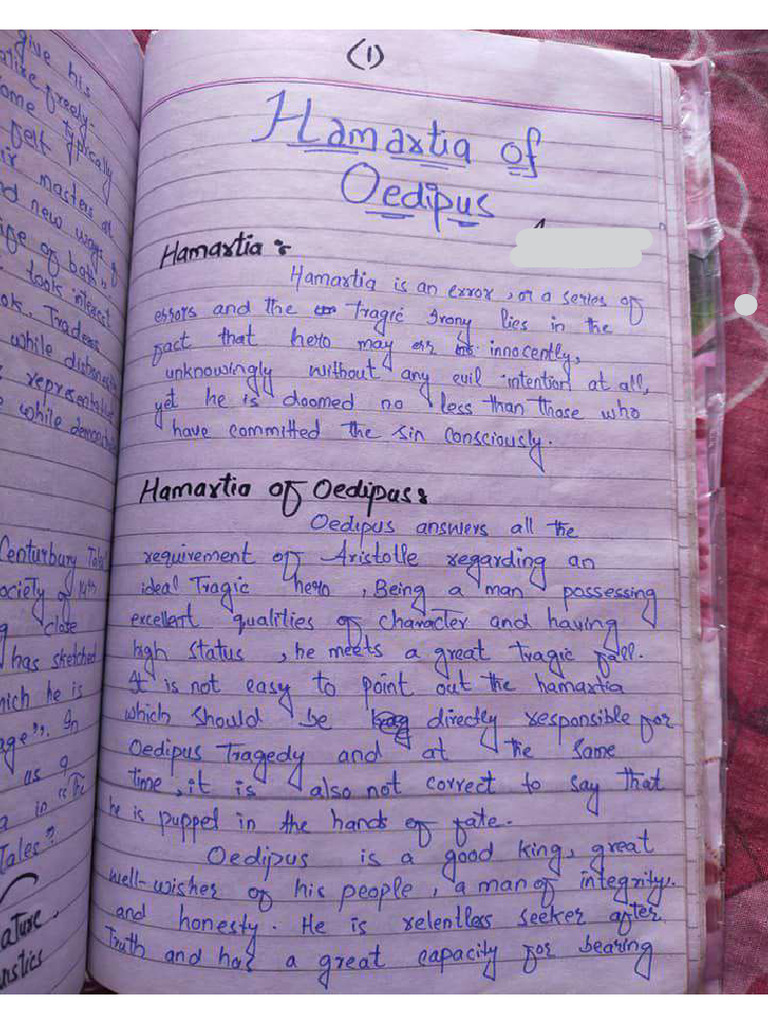 give his
freely.
ome typically
felt
ir masters at
nd new ways of
ife of both,
took interest
ok, Traders
while dishonest
representative
while demon
Centurbury Tal
ociety of 14th
close
has sketched
hich he is
age". In
as a
in "The
Tales".
ature.
(1)
Hamartia of
Oedipus
Hamartia :
Hamartia is an error, or a series of
errors and the tragic Irony lies in the
fact that hero may err innocently,
unknowingly without any evil intention at all,
yet he is doomed no less than those who
have committed the sin consciously.
Hamartia of Oedipas :
Oedipus answers all the
requirement of Aristolle regarding an
ideal Tragic hero, Being a man possessing
excellent qualities of character and having
high status, he meets a great tragic fall.
It is not easy to point out the hamartia
which should be directly responsible for
Oedipus Tragedy and at the same
time, it is also not correct to say that
he is puppet in the hands of fate.
Oedipus is a good king, great
well-wisher of his people, a man of integrity.
and honesty. He is relentless seeker after
Truth and has a great capacity for bearing